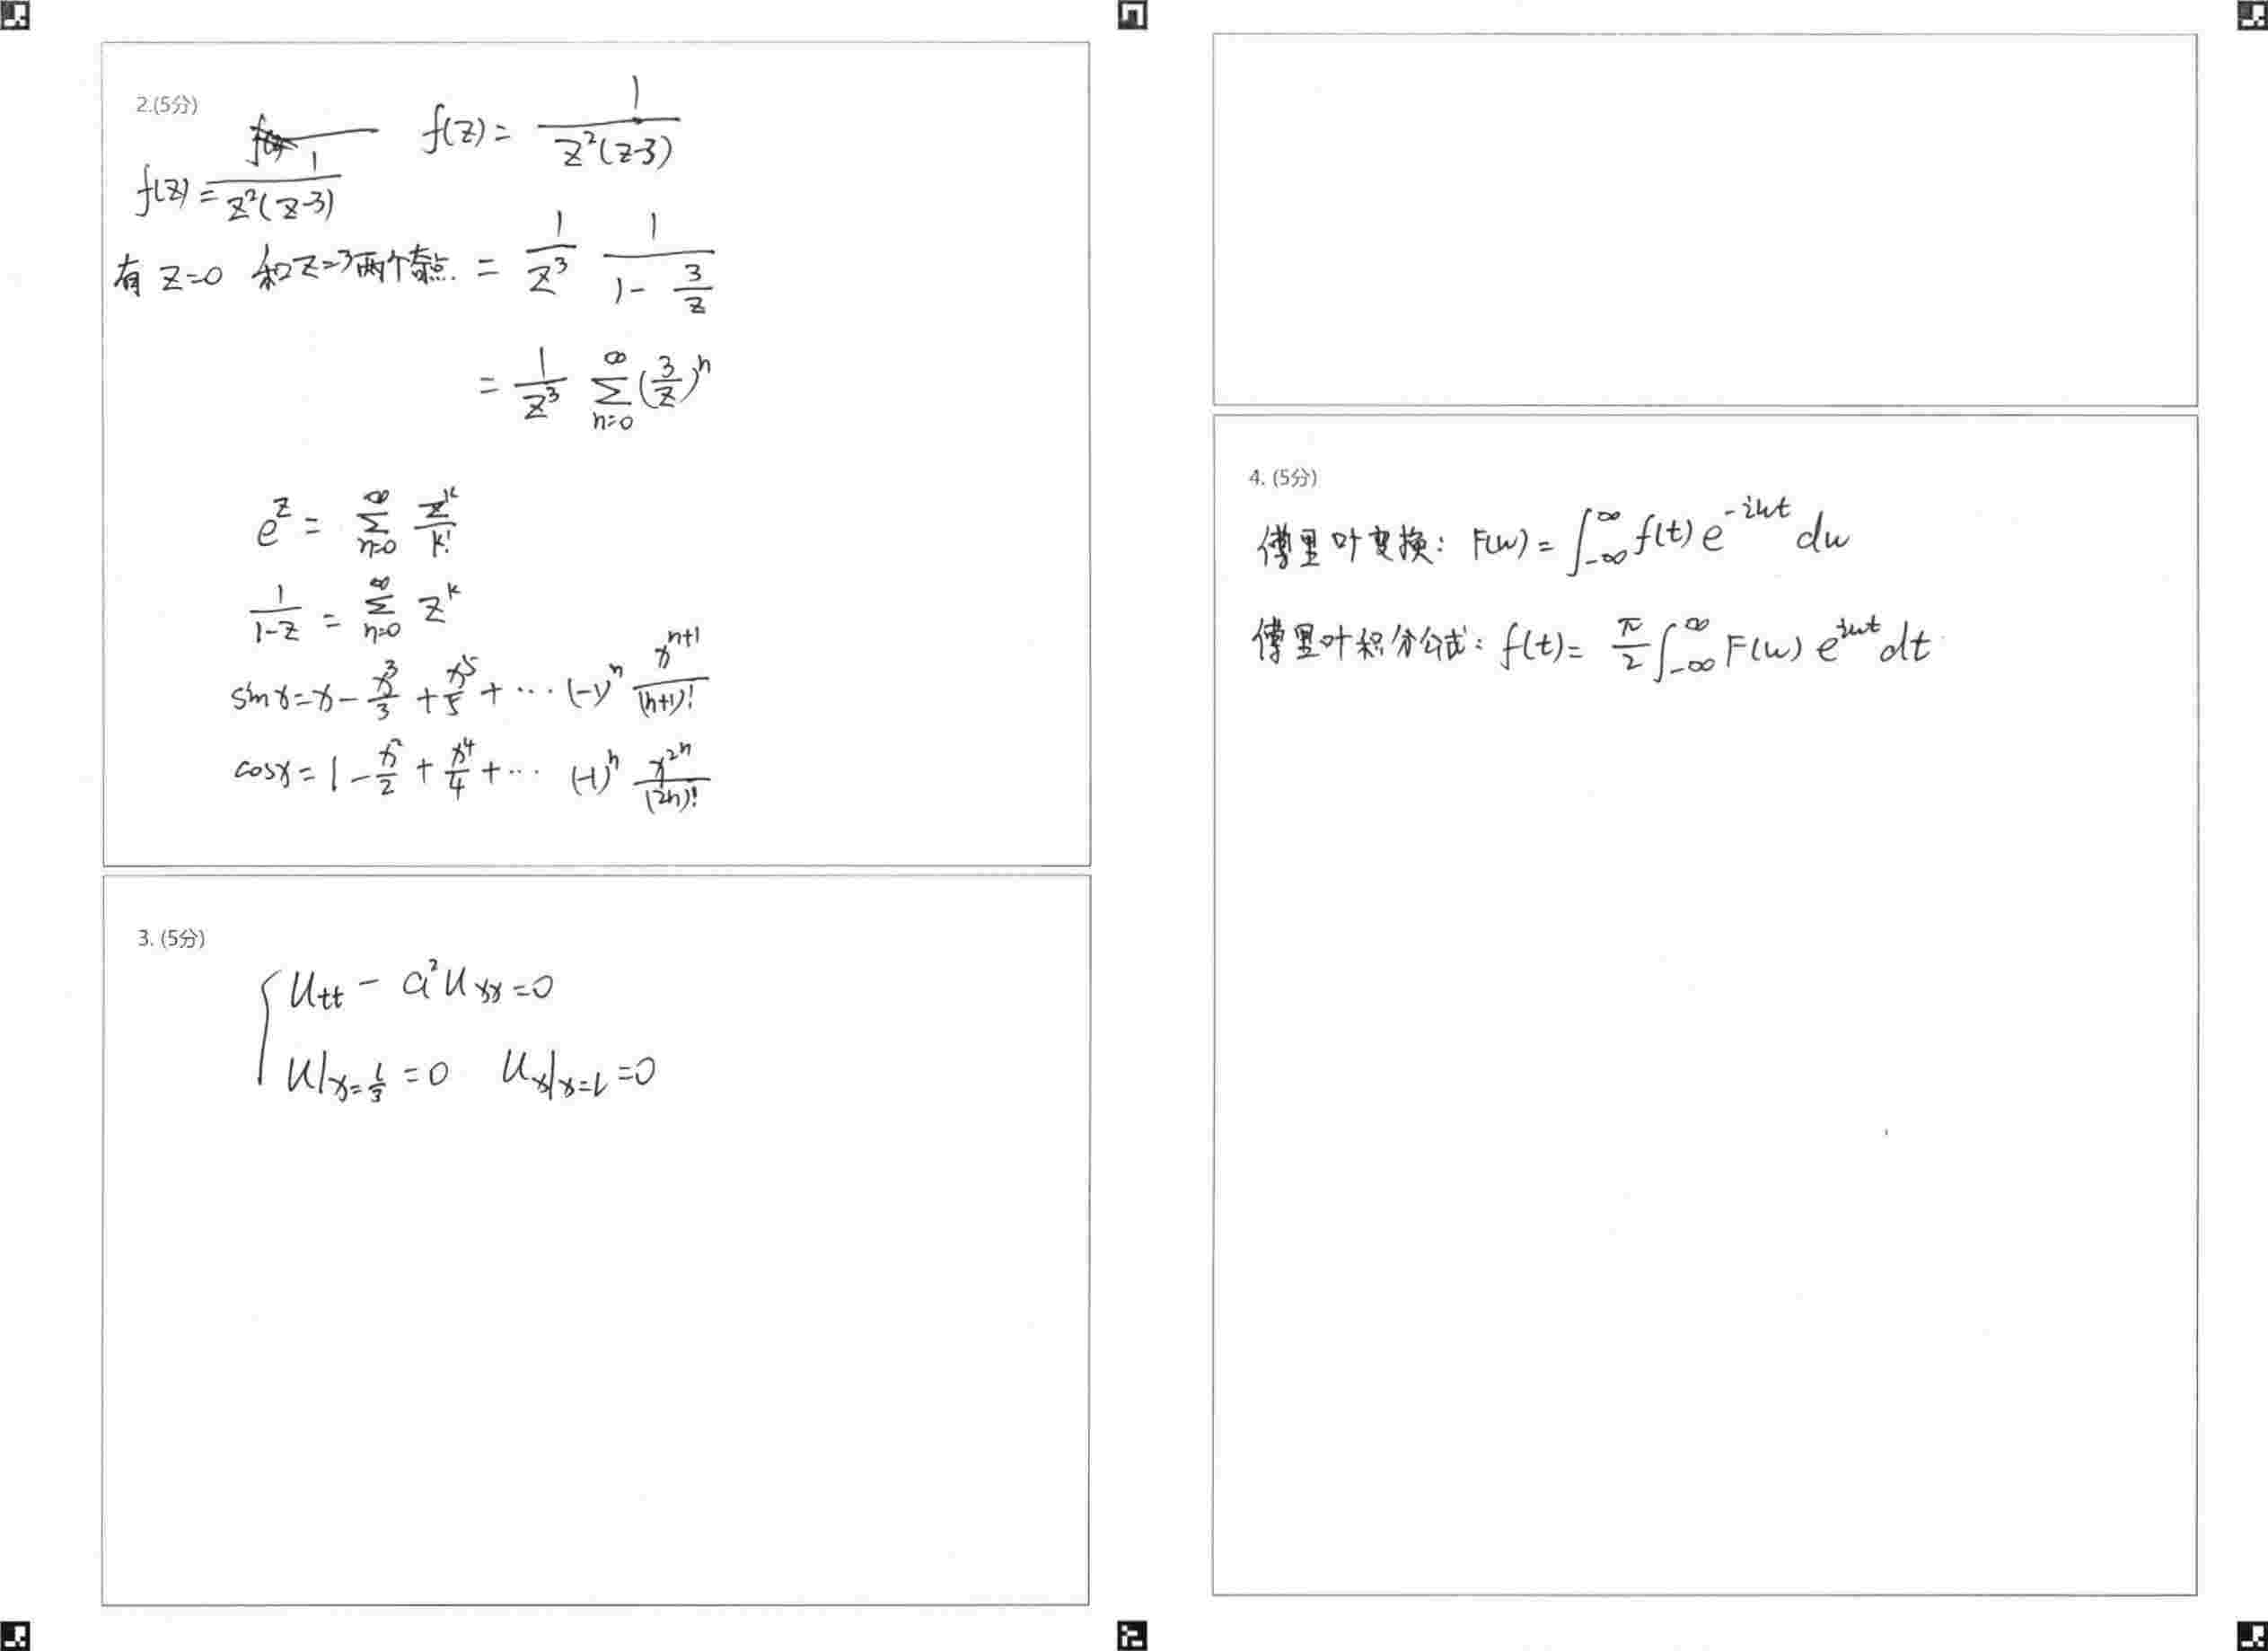 2.(5分)
f(z) = 1/(z²(z-3))
f(z) = 1/(z²(z-3))
有 z=0 和 z=3 两个奇点. = 1/z³ 1/(1 - 3/z)
= 1/z³ ∑_{n=0}^{∞} (3/z)^n
e^z = ∑_{n=0}^{∞} z^k/k!
1/(1-z) = ∑_{n=0}^{∞} z^k
sinx = x - x³/3 + x⁵/5 + ⋯ (-1)^n x^{n+1}/(n+1)!
cosx = 1 - x²/2 + x⁴/4 + ⋯ (-1)^n x^{2n}/(2n)!
3. (5分)
u_tt - a²u_xx = 0
u|_{x=l/3} = 0 u_x|_{x=L} = 0
4. (5分)
傅里叶变换: F(w) = ∫_{-∞}^{∞} f(t) e^{-iwt} dw
傅里叶积分公式: f(t) = π/2 ∫_{-∞}^{∞} F(w) e^{iwt} dt